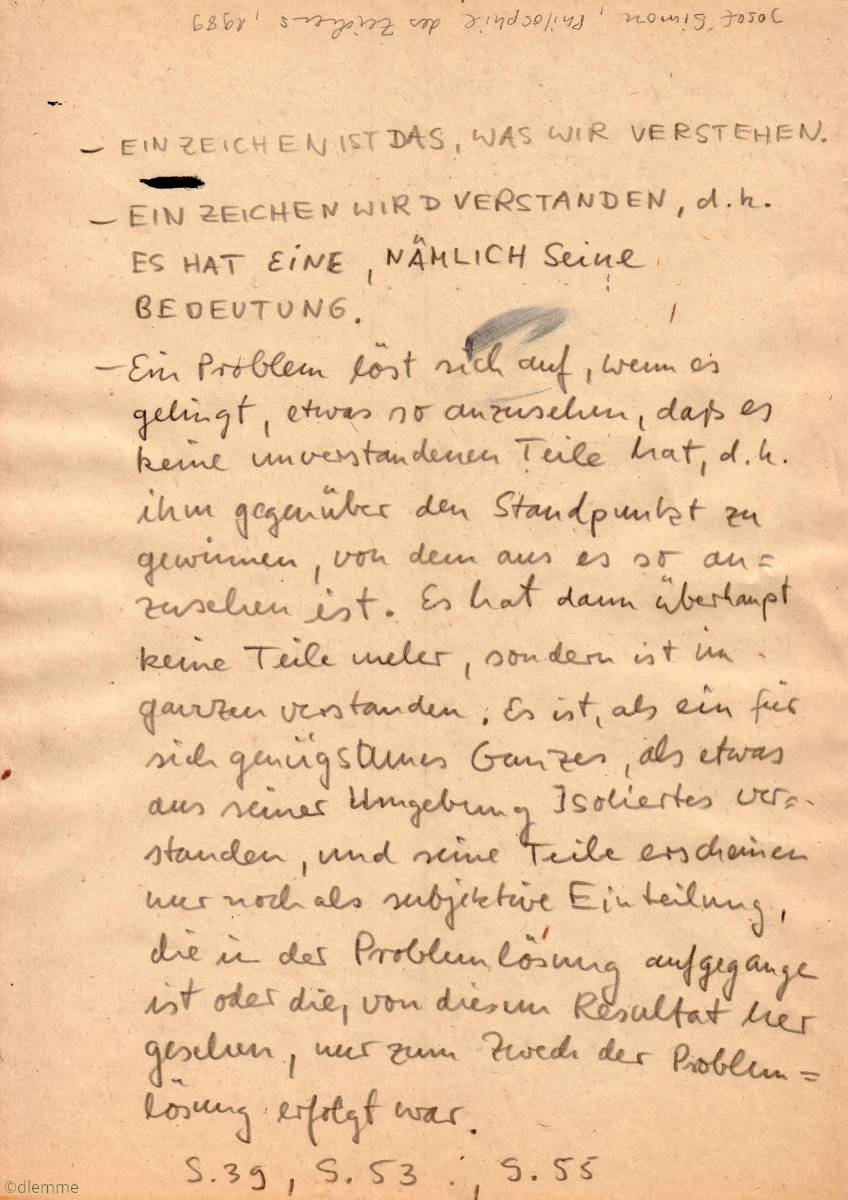 Josef Simon, Philosophie des Zeichens, 1989
– EIN ZEICHEN IST DAS, WAS WIR VERSTEHEN.
– EIN ZEICHEN WIRD VERSTANDEN, d.h.
ES HAT EINE, NÄMLICH Seine
BEDEUTUNG.
– Ein Problem löst sich auf, wenn es
gelingt, etwas so anzusehen, daß es
keine unverstandenen Teile hat, d.h.
ihm gegenüber den Standpunkt zu
gewinnen, von dem aus es so an=
zusehen ist. Es hat dann überhaupt
keine Teile mehr, sondern ist im
ganzen verstanden. Es ist, als ein für
sich genügsames Ganzes, als etwas
aus seiner Umgebung Isoliertes ver=
standen, und seine Teile erscheinen
nur noch als subjektive Einteilung,
die in der Problemlösung aufgegange
ist oder die, von diesem Resultat her
gesehen, nur zum Zweck der Problem=
lösung erfolgt war.
S.39, S.53, S.55
©dlemme